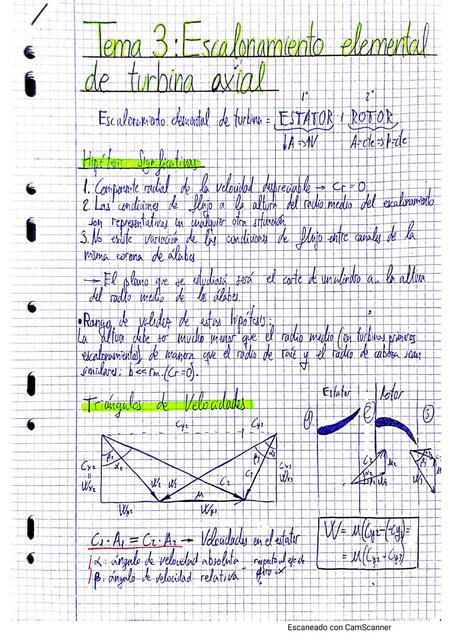 Tema 3: Escalonamiento elemental
de turbina axial
1º 2º
Escalonamiento elemental de turbina = ESTATOR + ROTOR
↓A ⇒ ↑V A = cte ⇒ P = cte
Hipótesis Significativas
1. Componente radial de la velocidad despreciable → Cr = 0
2. Las condiciones de flujo a la altura del radio medio del escalonamiento
son representativas en cualquier otra situación
3. No existe variación de las condiciones de flujo entre canales de la
misma corona de álabes
→ El plano que se estudiará será el corte de un cilindro a la altura
del radio medio de los álabes.
• Rango de validez de estas hipótesis:
La altura debe ser mucho menor que el radio medio (en turbinas primeros
escalonamientos) de manera que el radio de raíz y el radio de cabeza sean
similares: b << rm (Cr = 0).
Triángulos de Velocidades
Estator Rotor
1 2 3
C1 · A1 = C2 · A2 → Velocidades en el estator
α: ángulo de velocidad absoluta
β: ángulo de velocidad relativa
respecto al eje de
W = μ(Cy2 - (-Cy3)) =
= μ(Cy2 - Cy3)
Escaneado con CamScanner